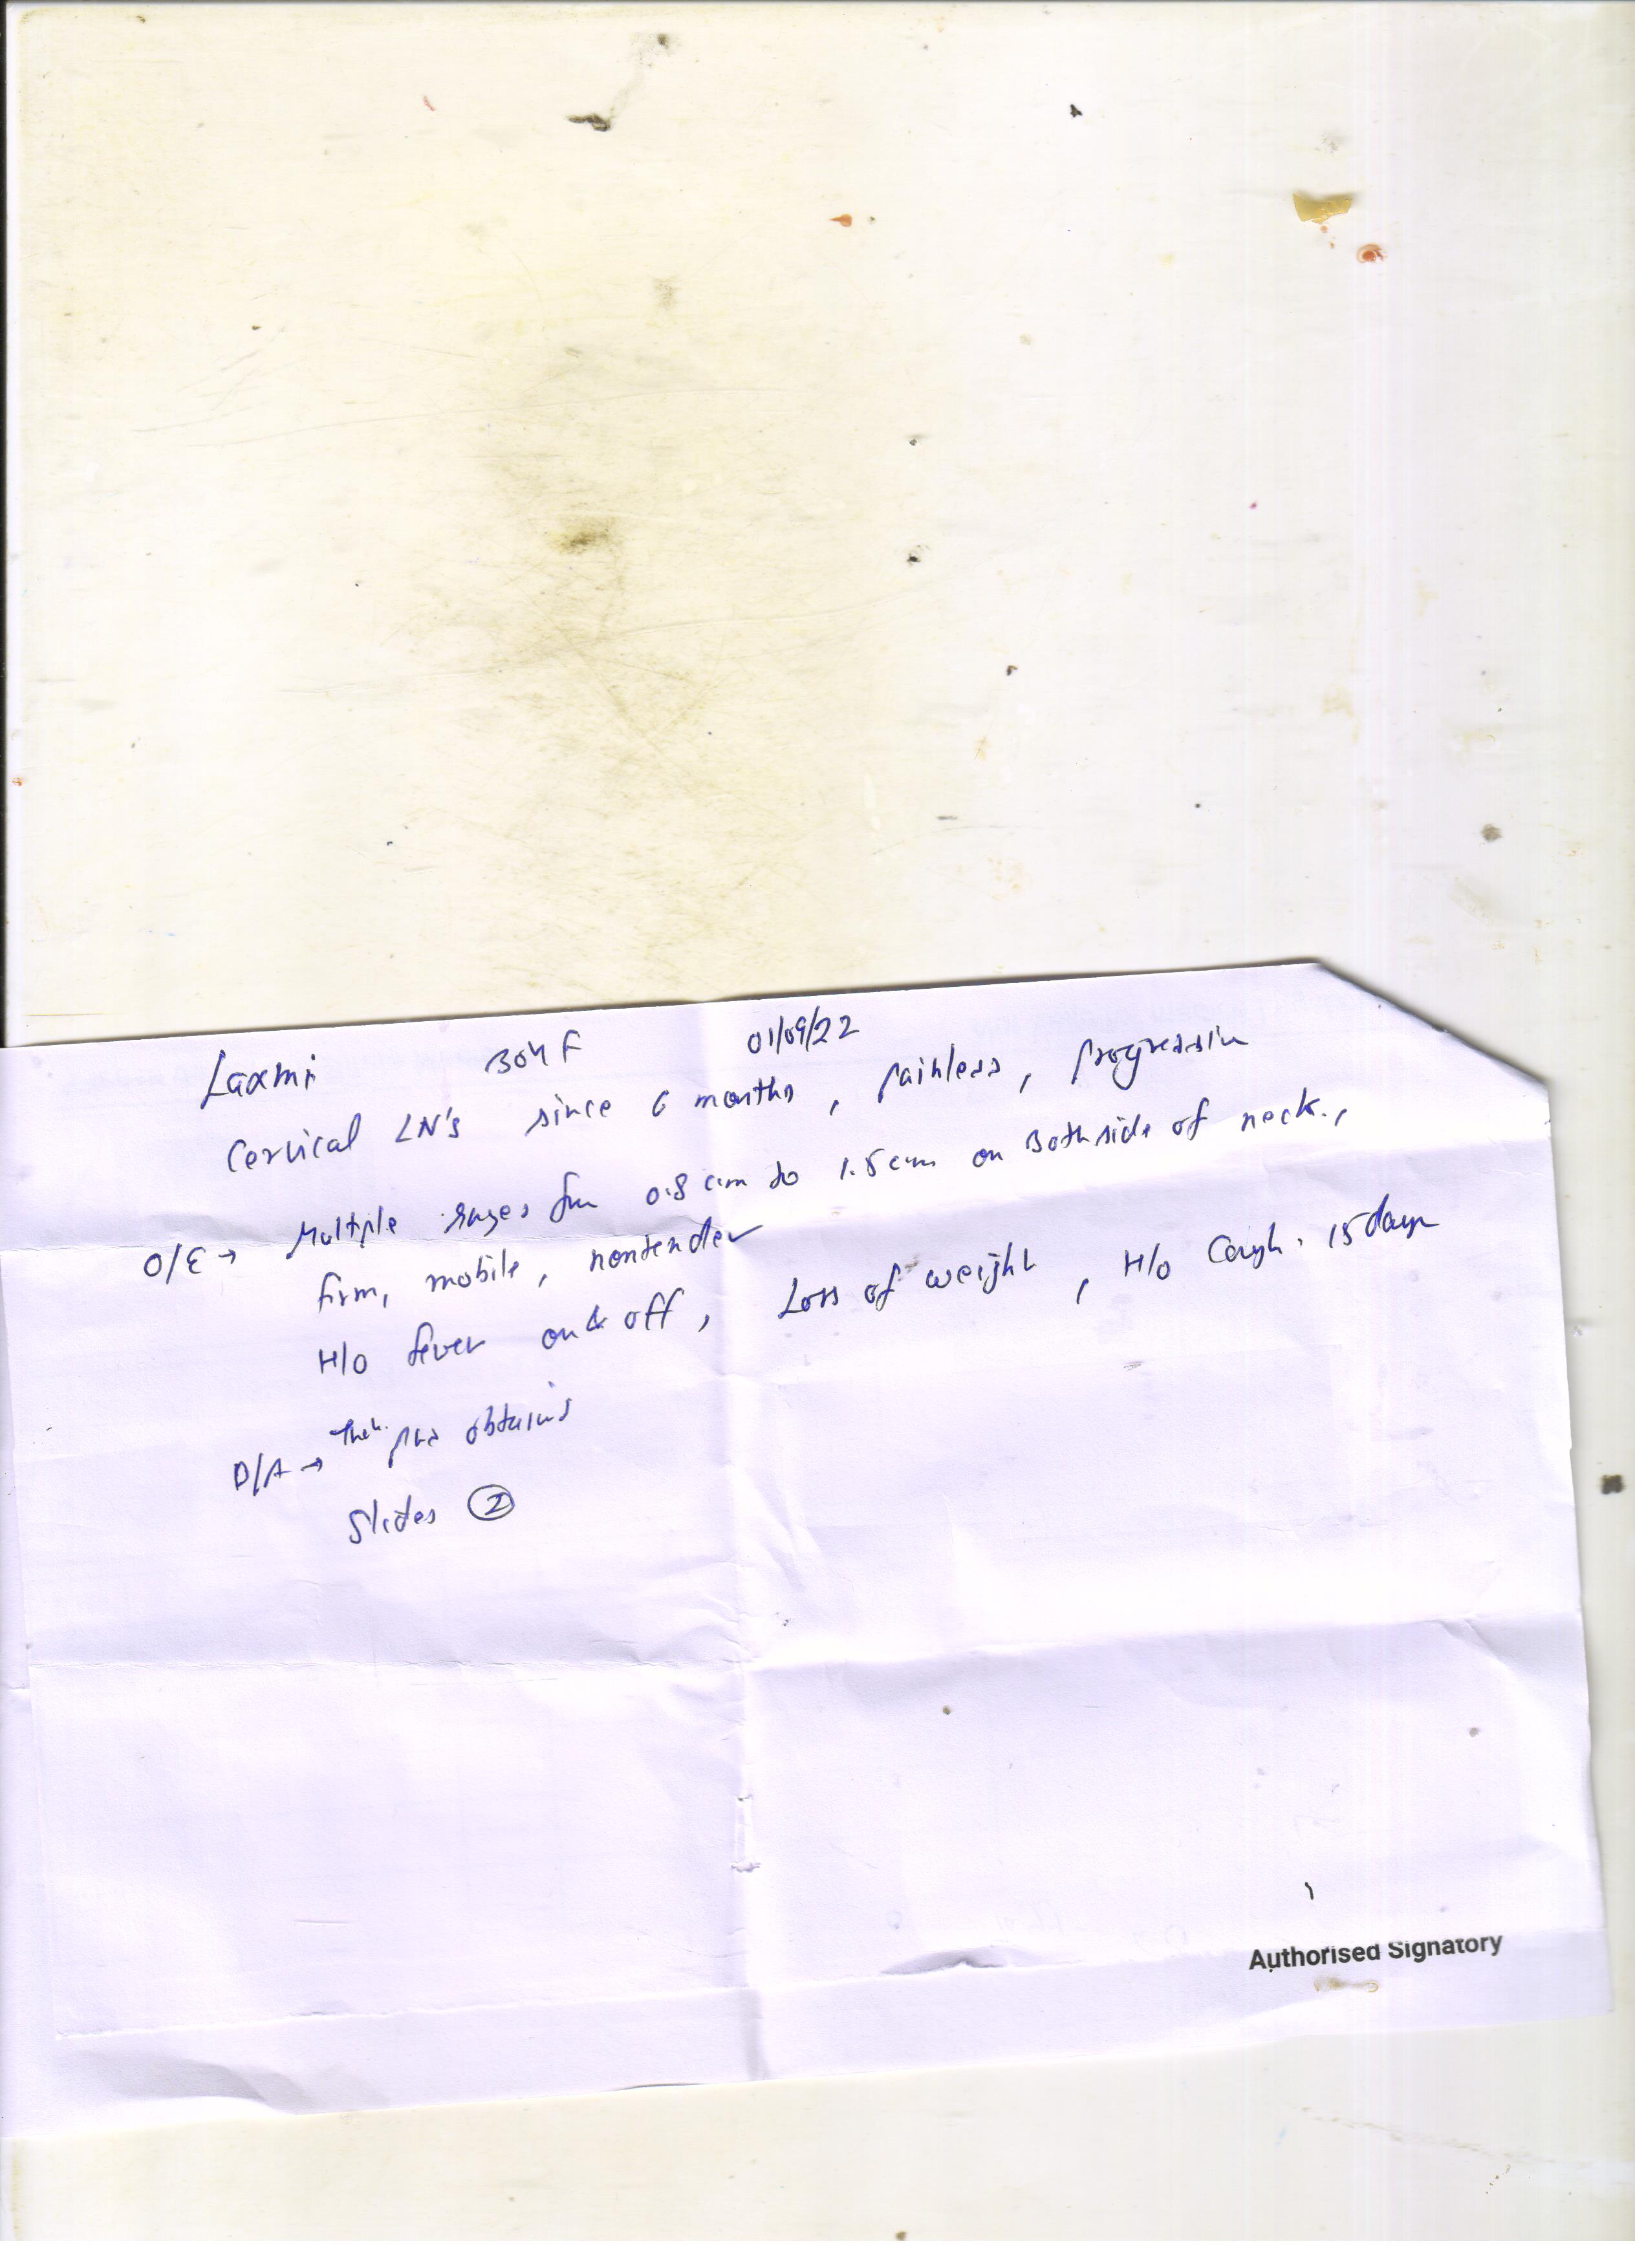 Laxmi 30y F 01/09/22
Cervical LN's since 6 months, painless, progressin
O/E → Multiple ranges fm 0.8 cm to 1.5 cm on Both side of neck.,
firm, mobile, nontender
H/o fever on & off, Loss of weight, H/o Cough. 15 days
D/A → Thck. pus obtained
Slides ②
Authorised Signatory